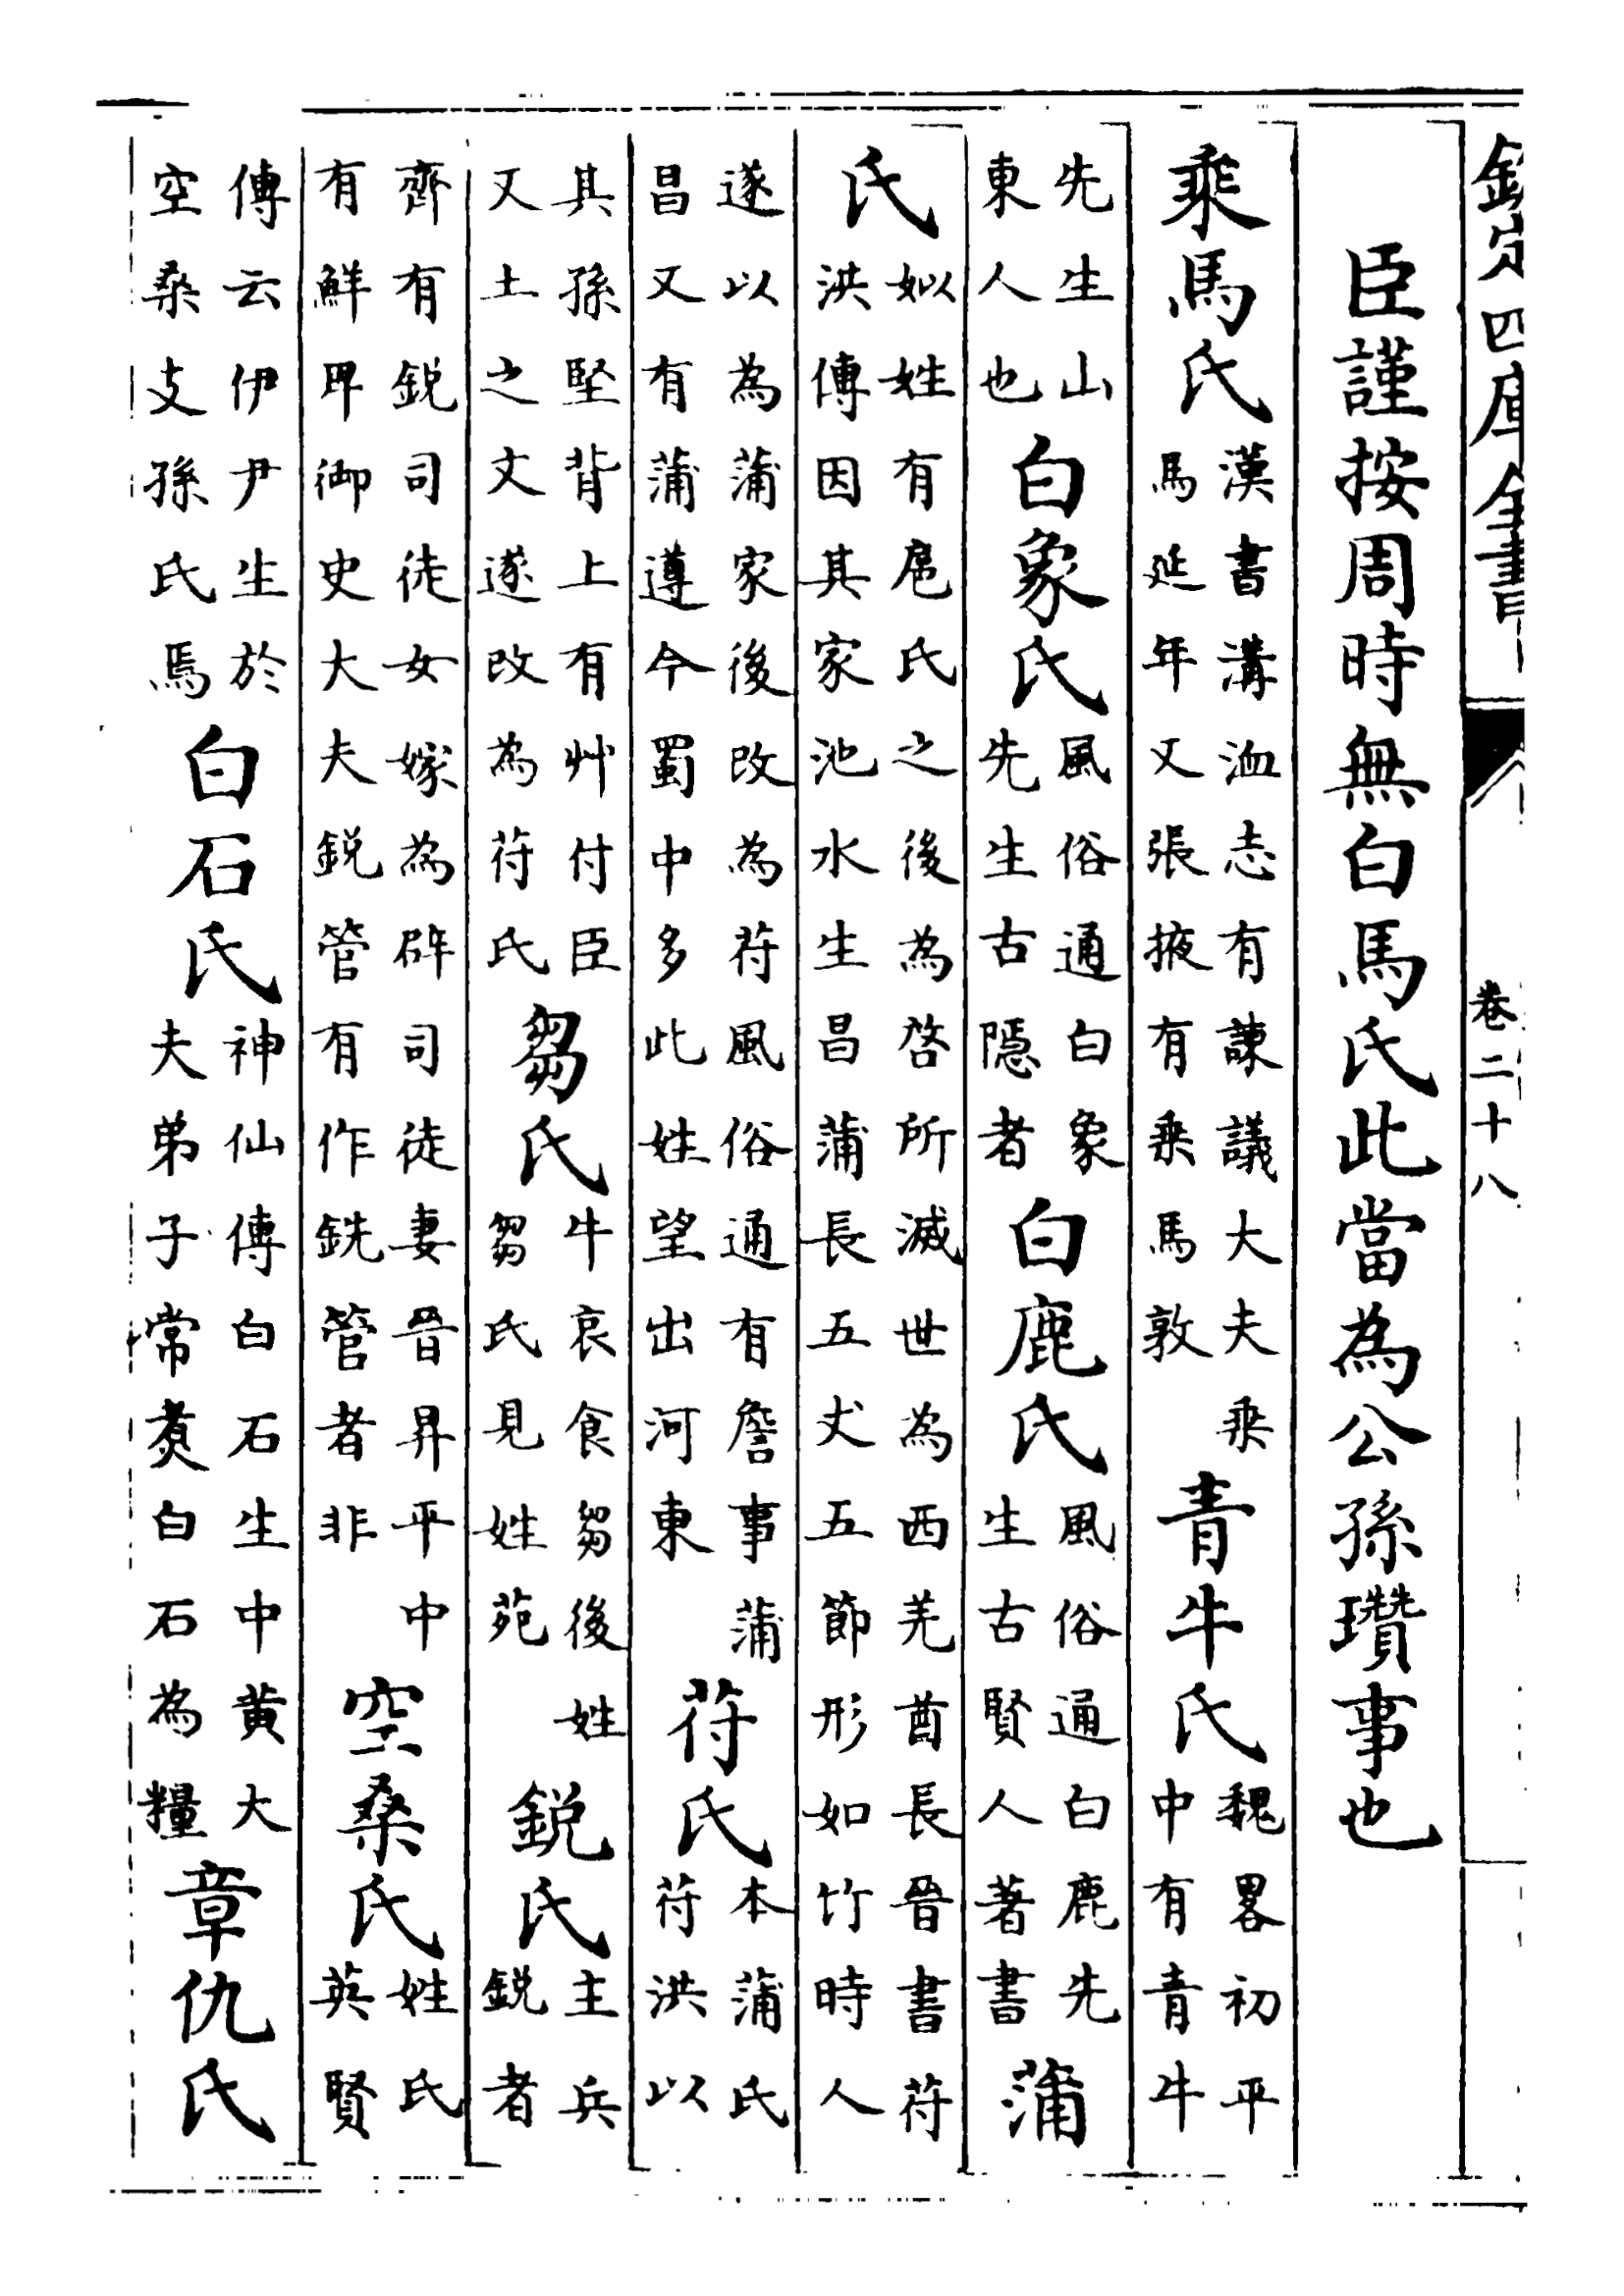 欽定四庫全書 卷二十八
臣謹按周時無白馬氏此當為公孫瓚事也
乘馬氏漢書溝洫志有諫議大夫乗馬延年又張掖有乗馬敦青牛氏魏畧初平中有青牛
先生山東人也白象氏風俗通白象先生古隱者白鹿氏風俗通白鹿先生古賢人著書蒲
氏姒姓有扈氏之後為啓所滅世為西羌酋長晉書苻洪傳因其家池水生昌蒲長五丈五節形如竹時人
遂以為蒲家後改為苻風俗通有詹事蒲昌又有蒲遵今蜀中多此姓望出河東苻氏本蒲氏苻洪以
其孫堅背上有艸付臣又土之文遂改為苻氏芻氏牛哀食芻後姓芻氏見姓苑鋭氏主兵鋭者
齊有鋭司徒女嫁為辟司徒妻晉昇平中有鮮卑御史大夫鋭管有作銑管者非空桑氏姓氏英賢
傳云伊尹生於空桑支孫氏焉白石氏神仙傳白石生中黄大夫弟子常煑白石為糧章仇氏